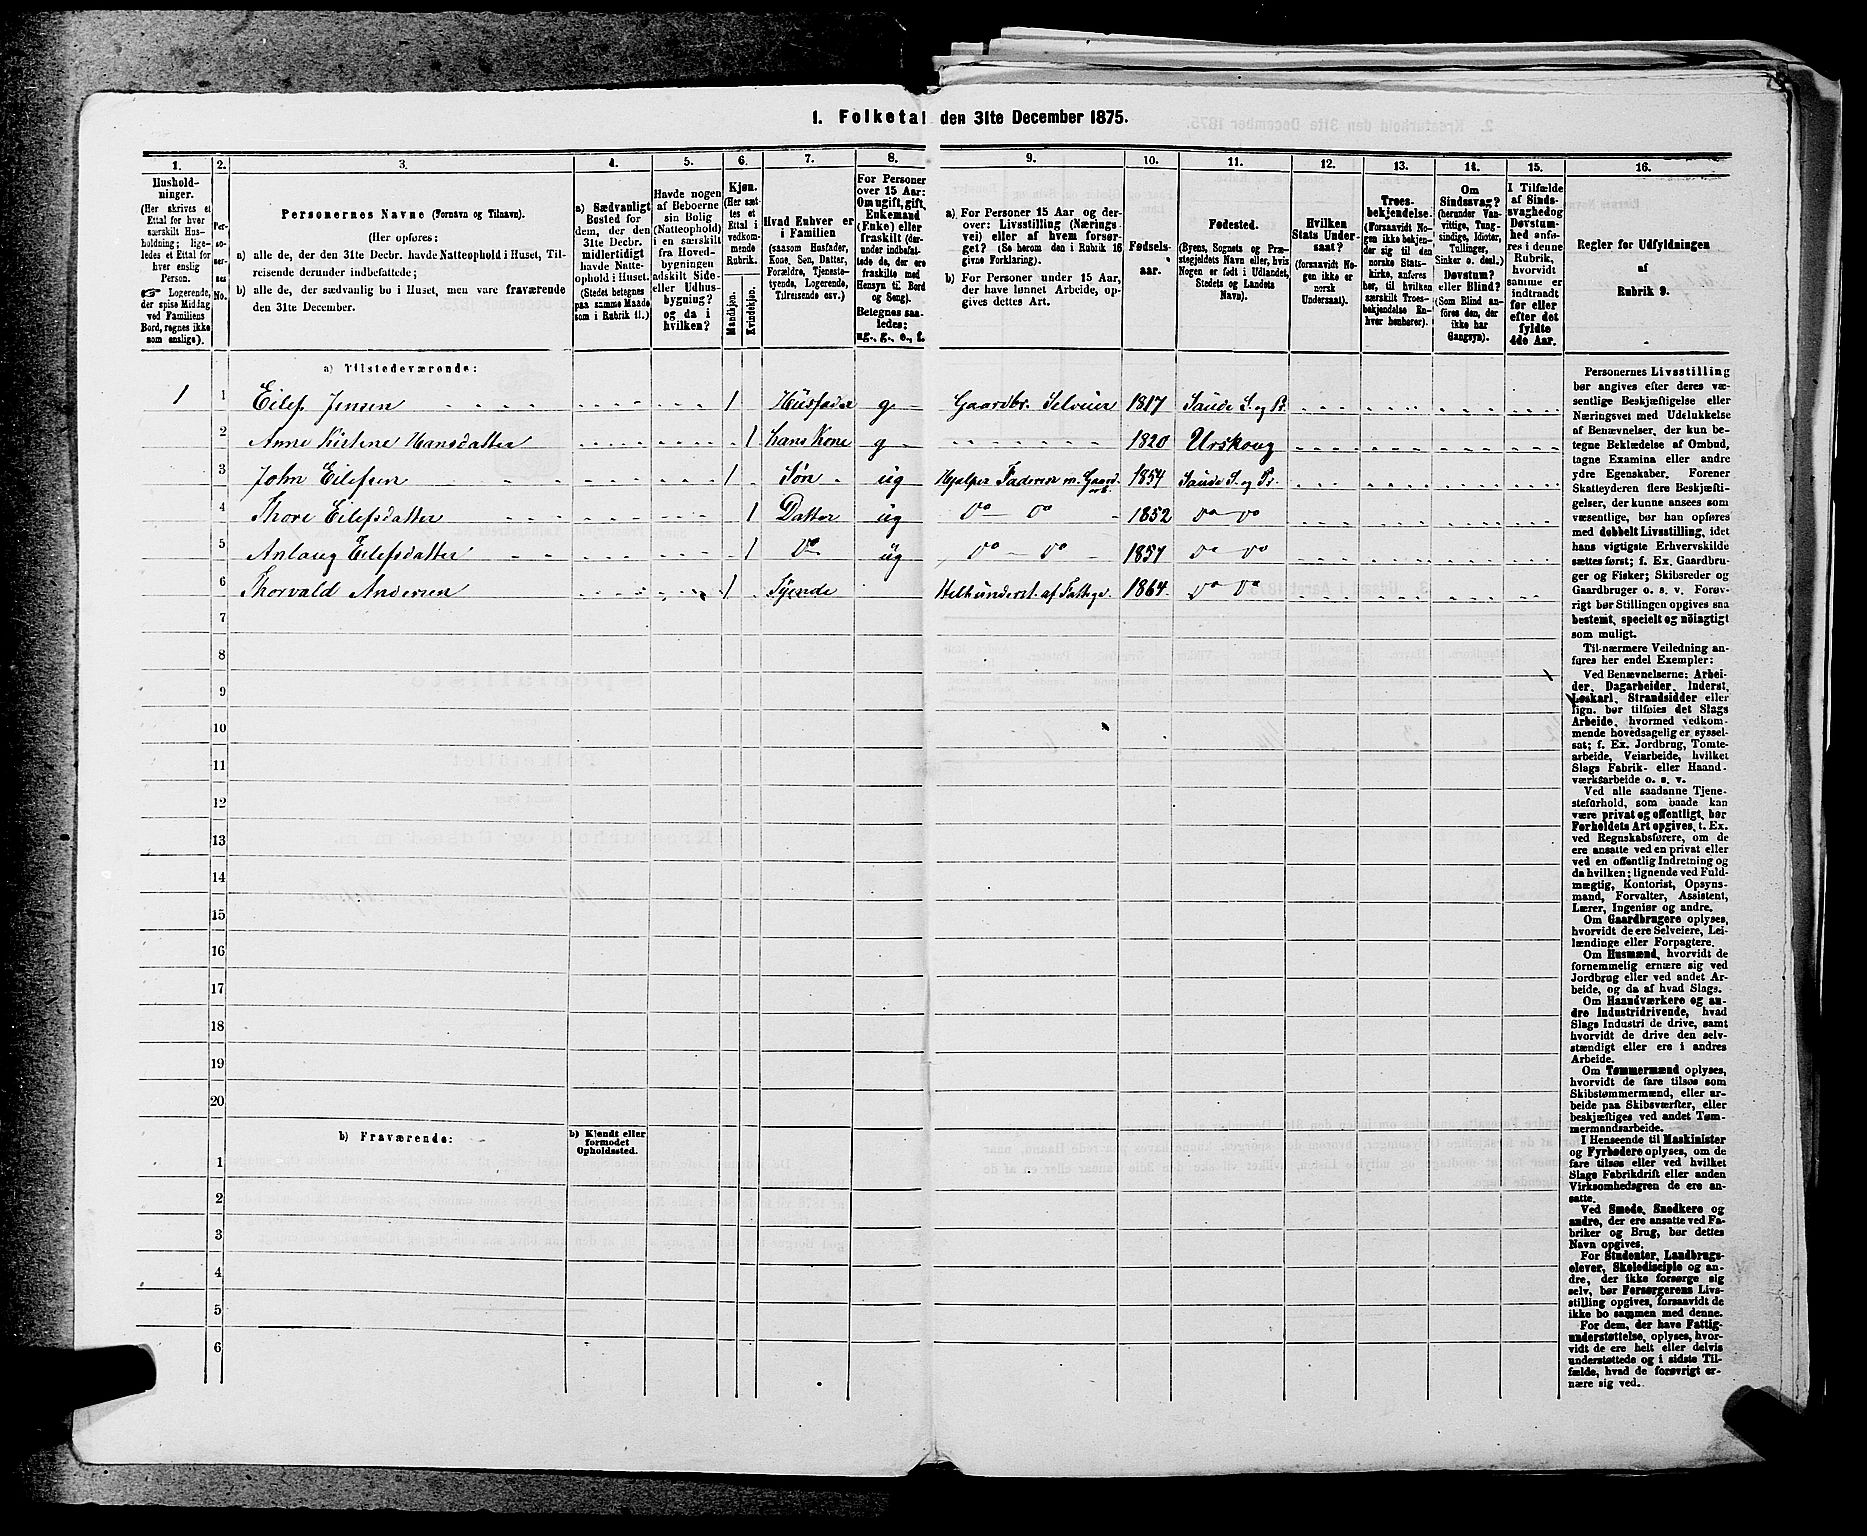 1. Folketal den 31te December 1875.
1.
2.
3.
4.
5.
6.
7.
8.
9.
10.
11.
12.
13.
14.
15.
16.
Hushold-
ninger.
(Her skrives et
Ettal for hver
særskilt Hus-
holdning; lige-
ledes et Ettal for
hver enslig
Person.
☞ Logerende,
der spise Middag
ved Familiens
Bord, regnes ikke
som enslige).
Per-
so-
ner-
nes
No.
Personernes Navne (Fornavn og Tilnavn).
(Her opføres:
a) alle de, der den 31te Decbr. havde Natteophold i Huset, Til-
reisende derunder indbefattede;
b) alle de, der sædvanlig bo i Huset, men vare fraværende
den 31te December.
a) Sædvanligt
Bosted for
dem, der den
31te Decbr.
midlertidigt
havde Natte-
ophold i Huset.
(Stedet betegnes
paa samme Maade
som i Rubrik 11.)
Havde nogen
af Beboerne
sin Bolig
(Natteophold)
i en særskilt
fra Hoved-
bygningen
adskilt Side-
eller Udhus-
bygning?
og da i
hvilken?
Kjøn.
(Her sæt-
tes et
Ettal i
vedkom-
mende
Rubrik.
Mandkjøn.
Kvindekjøn.
Hvad Enhver er
i Familien
(saasom Husfader,
Kone, Søn, Datter,
Forældre, Tjeneste-
tyende, Logerende,
Tilreisende osv.)
For Personer
over 15 Aar:
Om ugift, gift,
Enkemand
(Enke) eller
fraskilt (der-
under indbefat-
tede de, der ere
fraskilte med
Hensyn til Bord
og Seng).
Betegnes saa-
ledes:
ug., g., e., f.
a) For Personer 15 Aar og der-
over: Livsstilling (Nærings-
vei) eller af hvem forsør-
get? (Se herom den i Rubrik 16
givne Forklaring).
b) For Personer under 15 Aar,
der have lønnet Arbeide, op-
gives dettes Art.
Fødsels-
aar.
Fødested.
(Byens, Sognets og Præ-
stegjeldets Navn eller, hvis
Nogen er født i Udlandet,
Stedets og Landets
Navn).
Hvilken
Stats Under-
saat?
(forsaavidt No-
gen ikke er
norsk
Undersaat).
Troes-
bekjendelse.
(Forsaavidt No-
gen ikke bekjen-
der sig til den
norske Stats-
kirke, anføres
her, til hvilken
særskilt Troes-
bekjendelse En-
hver henhører).
Om
Sindssvag?
(herunder Van-
vittige, Tung-
sindige, Idioter,
Tullinger,
Sinker o. desl.)
Døvstum?
eller Blind?
(Som Blind an-
føres den, der
ikke har
Gangsyn).
I Tilfælde
af Sinds-
svaghed og
Døvstum-
hed anfø-
res i denne
Rubrik,
hvorvidt
samme er
indtraadt
før eller
efter det
fyldte
4de Aar.
Regler for Udfyldningen
af
Rubrik 9.
a) Tilstedeværende:
1 1 Eilef Jensen 1 Husfader g Gaardbr. Selveier 1817 Saude S. og Pr.
2 Anne Kirstene Hansdatter 1 hans Kone g 1820 Urskoug
3 John Eilefsen 1 Søn ug Hjelper Faderen m. Gaardarb. 1854 Saude S. og Pr.
4 Thore Eilefsdatter 1 Datter ug do do 1852 do do
5 Anlaug Eilefsdatter 1 do ug do do 1857 do do
6 Thorvald Andersen 1 Tyende Helt underst. af Fattigv. 1864 do do
7
8
9
10
11
12
13
14
15
16
17
18
19
20
b) Fraværende:
b) Kjendt eller
formodet
Opholdssted.
1
2
3
4
5
6
Personernes Livsstilling
bør angives efter deres væ-
sentlige Beskjæftigelse eller
Næringsvei med Udelukkelse
af Benævnelser, der kun be-
tegne Beklædelse af Ombud,
tagne Examina eller andre
ydre Egenskaber. Forener
Skatteyderen flere Beskjæfti-
gelser, der kunne ansees som
væsentlige, bør han opføres
med dobbelt Livsstilling, idet
hans vigtigste Erhvervskilde
sættes først; f. Ex. Gaardbru-
ger og Fisker; Skibsreder og
Gaardbruger o. s. v. Forøv-
rigt bør Stillingen opgives saa
bestemt, specielt og nøiagtigt
som muligt.
Til nærmere Veiledning an-
føres her endel Exempler:
Ved Benævnelserne: Arbei-
der, Dagarbeider, Inderst,
Løskarl, Strandsidder eller
lign. bør tilføies det Slags
Arbeide, hvormed vedkom-
mende hovedsagelig er syssel-
sat; f. Ex. Jordbrug, Tomte-
arbeide, Veiarbeide, hvilket
Slags Fabrik- eller Haand-
værksarbeide o. s. v.
Ved alle saadanne Tjene-
steforhold, som baade kan
være privat og offentligt, bør
Forholdets Art opgives, t. Ex.
ved Regnskabsførere, om de
ere ansatte ved en privat eller
ved en offentlig Indretning og
da hvilken; lignende ved Fuld-
mægtig, Kontorist, Opsyns-
mand, Forvalter, Assistent,
Lærer, Ingeniør og andre.
Om Gaardbrugere oplyses,
hvorvidt de ere Selveiere, Lei-
lændinge eller Forpagtere.
Om Husmænd, hvorvidt de
fornemmelig ernære sig ved
Jordbrug eller ved andet Ar-
beide, og da af hvad Slags.
Om Haandværkere og an-
dre Industridrivende, hvad
Slags Industri de drive, samt
hvorvidt de drive den selv-
stændigt eller ere i andres
Arbeide.
Om Tømmermænd oplyses,
hvorvidt de fare tilsøs som
Skibstømmermænd, eller ar-
beide paa Skibsværfter, eller
beskjæftiges ved andet Tøm-
mermandsarbeide.
I Henseende til Maskinister
og Fyrbødere oplyses, om de
fare tilsøs eller ved hvilket
Slags Fabrikdrift eller anden
Virksomhedsgren de ere an-
satte.
Ved Smede, Snedkere og
andre, der ere ansatte ved Fa-
briker og Brug, bør dettes
Navn opgives.
For Studenter, Landbrugs-
elever, Skoledisciple og an-
dre, der ikke forsørge sig
selv, bør Forsørgerens Livs-
stilling opgives, forsaavidt de
ikke bo sammen med denne.
For dem, der have Fattig-
understøttelse, oplyses, hvor-
vidt de ere helt eller delvis
understøttede og i sidste Til-
fælde, hvad de forøvrigt er-
nære sig ved.